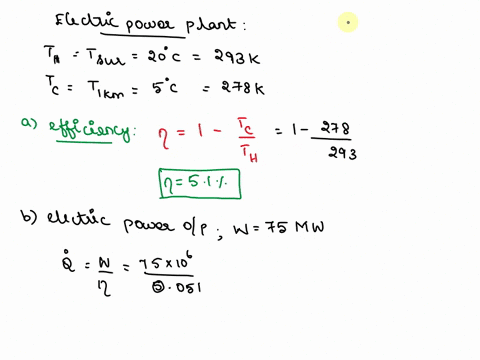 Electric power plant:
T_H = T_sur = 20°C = 293K
T_C = T_1km = 5°C = 278K
a) efficiency: η = 1 - T_C/T_H = 1 - 278/293
η = 5.1%
b) electric power o/p ; W = 75 MW
Q̇ = W/η = 75×10⁶/0.051